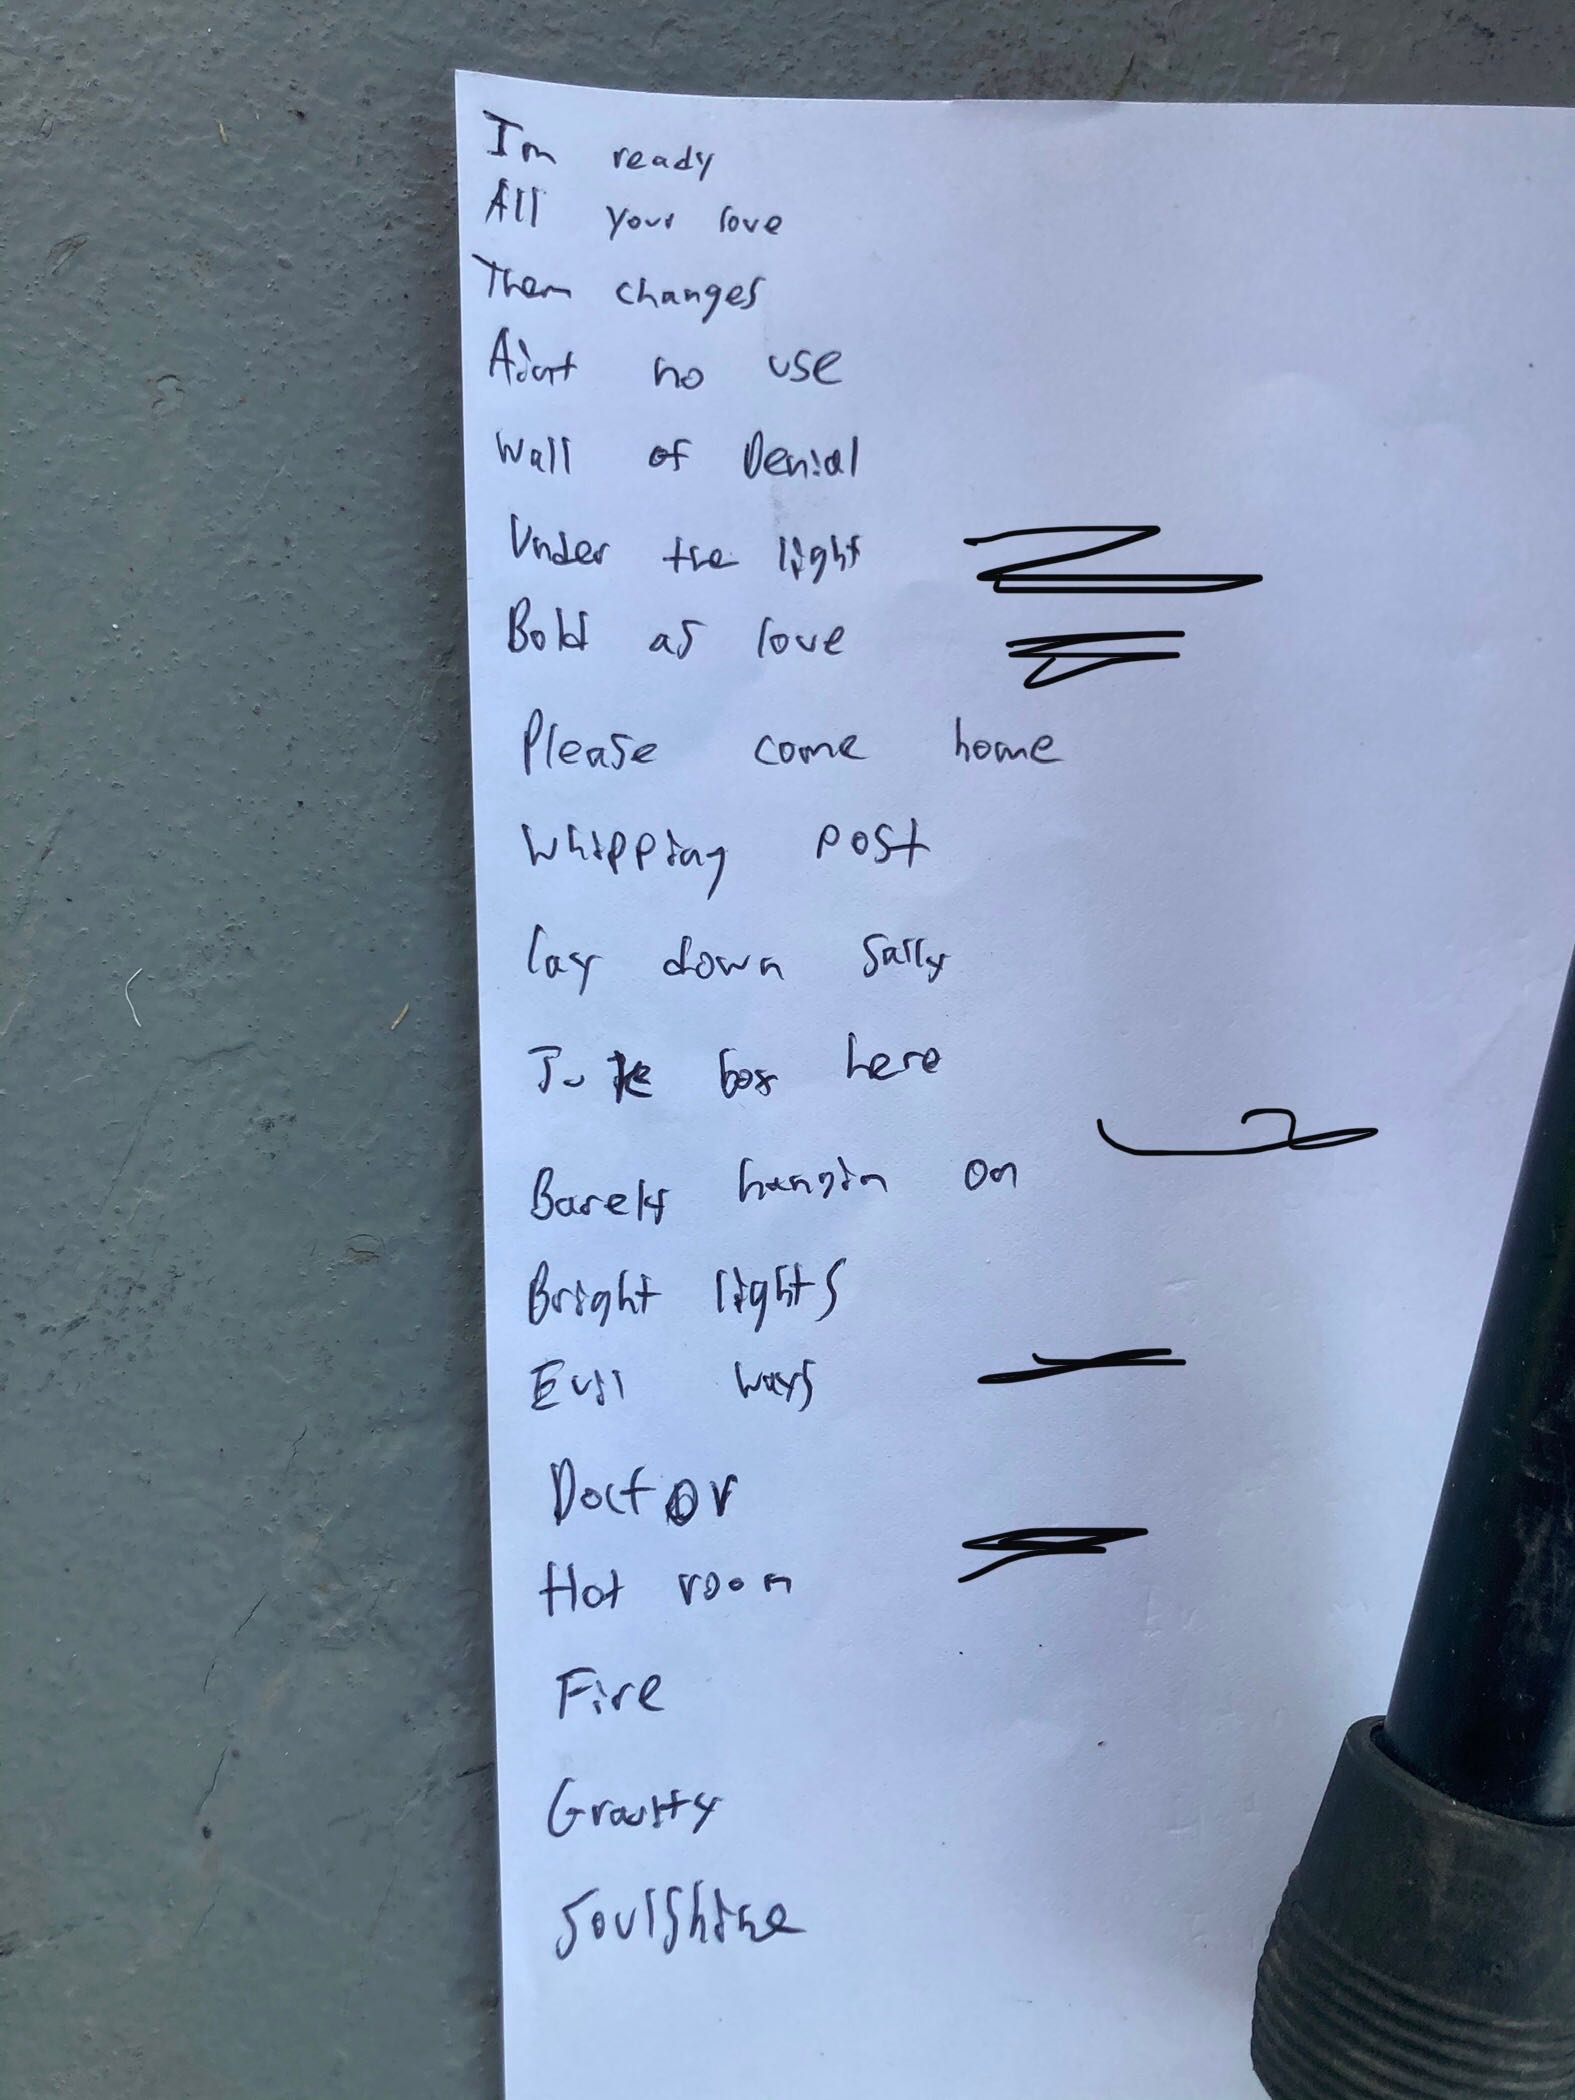 I'm ready
All your love
Them changes
Aint no use
Wall of Denial
Under the light
Bold as love
Please come home
Whipping post
Lay down Sally
Juke box here
Barely hangin on
Bright lights
Evil ways
Doctor
Hot room
Fire
Gravity
Soulshine